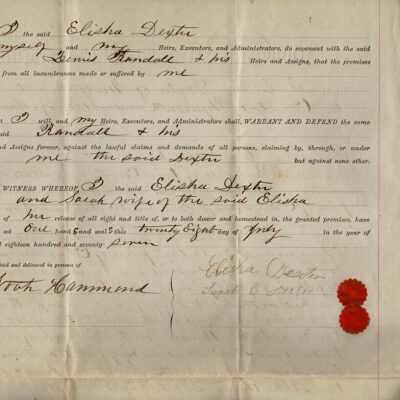 I the said Elisha Dexter
myself and my Heirs, Executors, and Administrators, do covenant with the said
Lewis Randall & his Heirs and Assigns, that the premises
from all incumbrances made or suffered by me
I will, and my Heirs, Executors, and Administrators shall, WARRANT AND DEFEND the same
said Randall & his
and Assigns forever, against the lawful claims and demands of all persons, claiming by, through, or under
me the said Dexter but against none other.
WITNESS WHEREOF, I the said Elisha Dexter
and Sarah wife of the said Elisha
of her release of all right and title of, or to both dower and homestead in, the granted premises, have
set our hands and seals this twenty Eight day of July in the year of
eighteen hundred and seventy seven
and delivered in presence of
Noah Hammond
Elisha Dexter